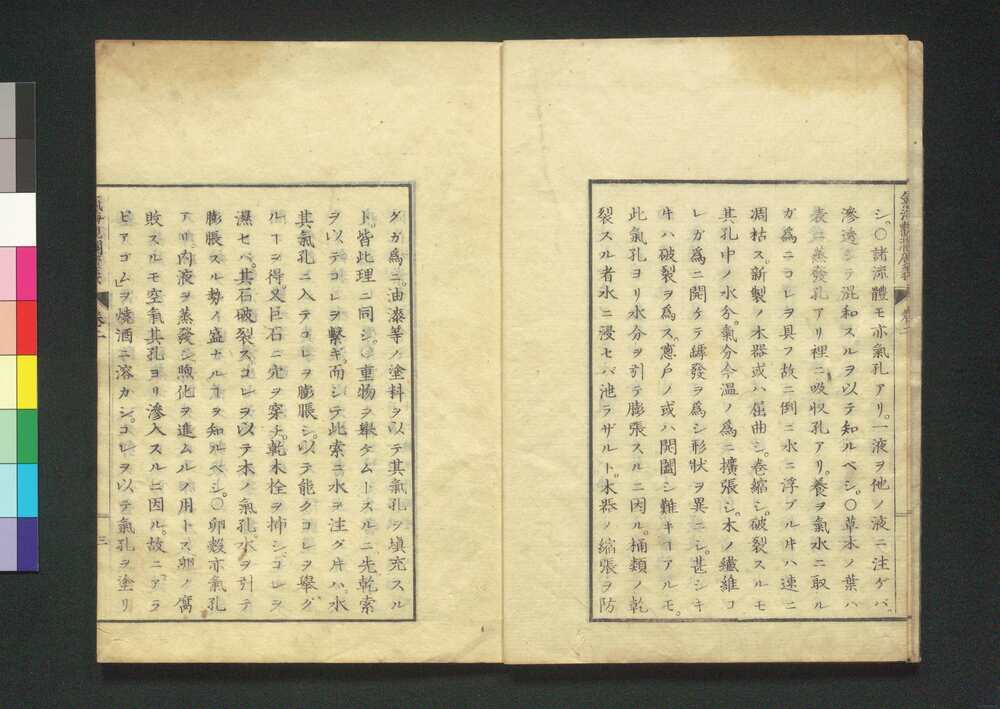 シ。○諸流體モ亦氣孔アリ。一液ヲ他ノ液ニ注ゲバ。
滲透シテ混和スルヲ以テ知ルベシ。○草木ノ葉ハ
表ニ蒸發孔アリ裡ニ吸收孔アリ。養ヲ氣水ニ取ル
ガ爲ニコレヲ具フ故ニ倒ニ水ニ浮ブル片ハ速ニ
凋枯ス。新製ノ木器或ハ屈曲シ。卷縮シ。破裂スルモ
其孔中ノ水分。氣分今温ノ爲ニ擴張シ。木ノ纖維コ
レガ爲ニ開ケテ罅發ヲ爲シ形狀ヲ異ニシ。甚シキ
片ハ破裂ヲ爲ス。窻戸ノ或ハ開闔シ難キヿアルモ。
此氣孔ヨリ水分ヲ引テ膨張スルニ因ル。桶類ノ乾
裂スル者水ニ浸セバ池ラザルト。木器ノ縮張ヲ防
グガ爲ニ。油漆等ノ塗料ヲ以テ其氣孔ヲ填充スル
ト。皆此理ニ同シ。○重物ヲ擧ゲムトスルニ先乾索
ヲ以テコレヲ繋ギ。而シテ此索ニ水ヲ注グ片ハ。水
其氣孔ニ入テコレヲ膨脹シ。以テ能クコレヲ擧グ
ルヿヲ得。又巨石ニ穴ヲ穿チ。乾木栓ヲ揷シ。コレヲ
濕セバ。其石破裂ス。コレヲ以テ木ノ氣孔。水ヲ引テ
膨脹スル勢イ盛ナルヿヲ知ルベシ。○卵殻亦氣孔
アリ内液ヲ蒸發シ煦化ヲ進ムルノ用トス卵ノ腐
敗スルモ空氣其孔ヨリ滲入スルニ因ル。故ニアラ
ビアゴム」ヲ燒酒ニ溶カシ。コレヲ以テ氣孔ヲ塗リ
卷二
三